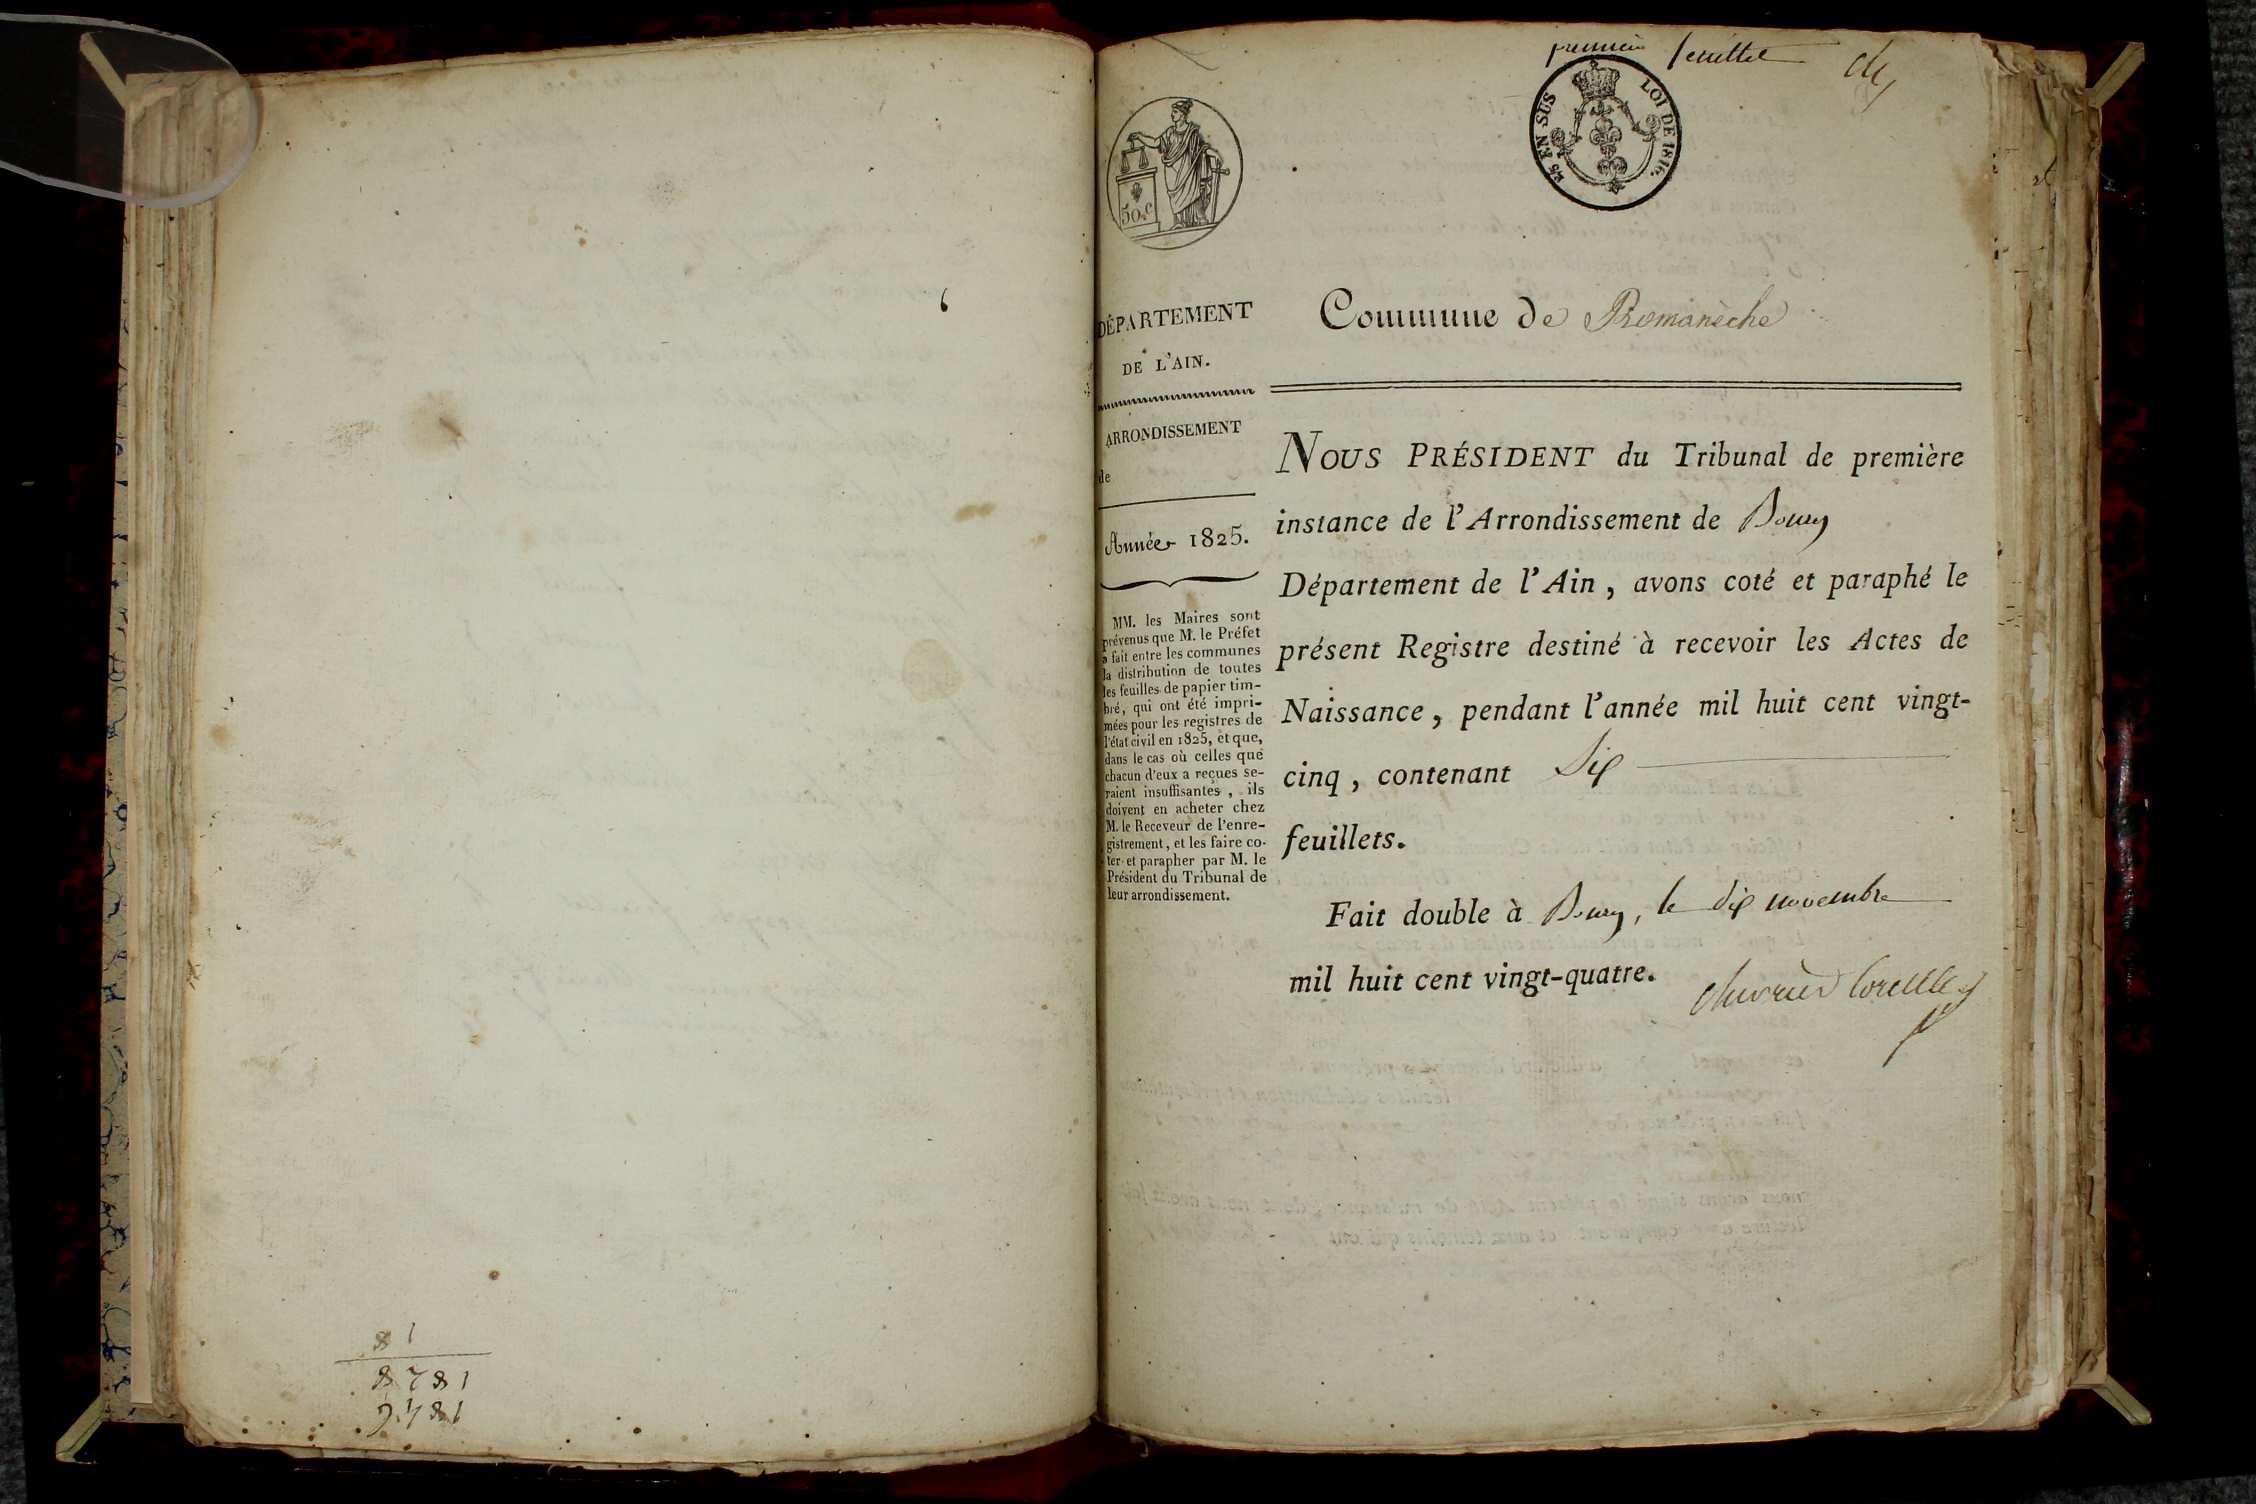 premier feuillet
25 EN SUS LOI DE 1816.
50.c
DÉPARTEMENT
DE L'AIN.
ARRONDISSEMENT
de
Année 1825.
MM. les Maires sont
prévenus que M. le Préfet
a fait entre les communes
la distribution de toutes
les feuilles de papier tim-
bré, qui ont été impri-
mées pour les registres de
l'état civil en 1825, et que,
dans le cas où celles que
chacun d'eux a reçues se-
raient insuffisantes, ils
doivent en acheter chez
M. le Receveur de l'enre-
gistrement, et les faire co-
ter et parapher par M. le
Président du Tribunal de
leur arrondissement.
Commune de Romanèche
NOUS PRÉSIDENT du Tribunal de première
instance de l'Arrondissement de Bourg
Département de l'Ain, avons coté et paraphé le
présent Registre destiné à recevoir les Actes de
Naissance, pendant l'année mil huit cent vingt-
cinq, contenant Six
feuillets.
Fait double à Bourg, le dix novembre
mil huit cent vingt-quatre.
81
8781